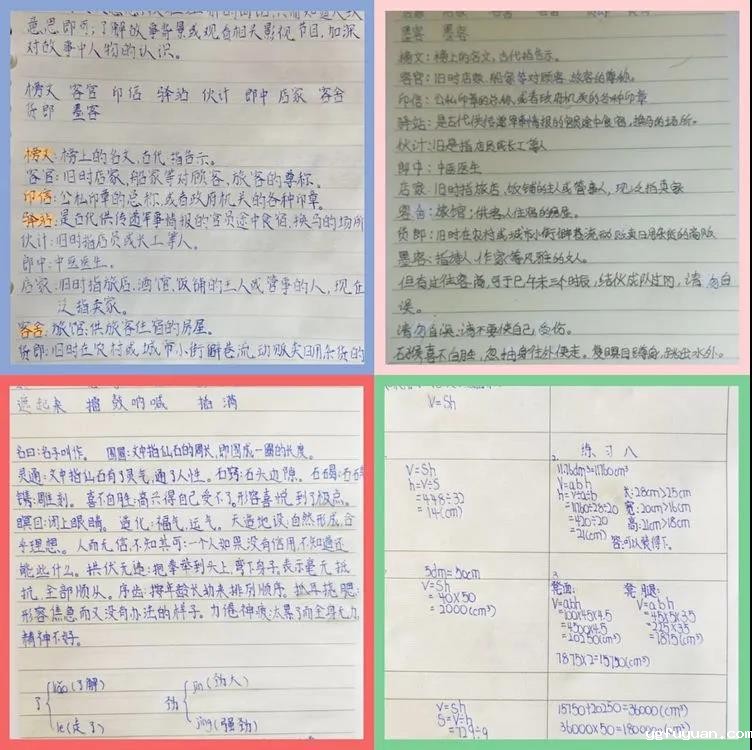 意思即可;了解故事背景或观看相关影视节目,加深
对故事中人物的认识。
榜文 客官 印信 驿站 伙计 郎中 店家 客舍
货郎 墨客
榜文:榜上的名文,古代指告示。
客官:旧时店家、船家等对顾客、旅客的尊称。
印信:公私印章的总称,或者政府机关的各种印章。
驿站:是古代供传递军事情报的官员途中食宿、换马的场所
伙计:旧时指店员或长工等人。
郎中:中医医生。
店家:旧时指旅店、酒馆、饭铺的主人或管事的人,现在
泛指卖家。
客舍:旅馆;供旅客住宿的房屋。
货郎:旧时在农村或城市小街僻巷流动贩卖日用杂货的
墨客 墨客
榜文:榜上的名文,古代指告示。
客官:旧时店家、船家等对顾客、旅客的尊称。
印信:公私印章的总称,或者政府机关的各种印章
驿站:是古代供传递军事情报的官员途中食宿、换马的场所。
伙计:旧是指店员或长工等人
郎中:中医医生
店家:旧时指旅店、饭铺的主人或管事人,现泛指卖家
客舍:旅馆;供客人住宿的房屋。
货郎:旧时在农村或城市小街僻巷流动贩卖日用杂货的商贩
墨客:指诗人、作家等风雅的文人。
但有过往客商,可于巳午未三个时辰,结伙成队过冈,请勿自
误。
请勿自误:请不要使自己受伤。
石猴喜不自胜,忽抽身往外便走。复瞑目蹲身,跳出水外。
擂鼓呐喊
名曰:名字叫作。 围圆:文中指仙石的周长,即围成一圈的长度。
灵通:文中指仙石有了灵气,通了人性。石窍:石头边隙。石碣:石碑
镌:雕刻。 喜不自胜:高兴得自己受不了。形容喜悦到了极点。
瞑目:闭上眼睛。 造化:福气,运气。 天造地设:自然形成,合
乎理想。 人而无信,不知其可:一个人如果没有信用,不知道还
能些什么。拱伏无违:把拳举到头上,弯下身子,表示毫无抵
抗,全部顺从。序齿:按年龄长幼来排列顺序。抓耳挠腮:
形容焦急而又没有办法的样子。力倦神疲:太累了而全身无力,
精神不好。
了 liǎo(了解) 劲 jìn(劲大)
le(走了) jìng(强劲)
V=Sh
V=Sh
h=V÷S
=448÷32
=14(cm)
2. 练习八
11.76dm³=11760cm³
V=abh
h=V÷a÷b
=11760÷28÷20
=420÷20
=21(cm)
长:28cm>25cm
宽:20cm>16cm
高:21cm>18cm
答:可以装得下。
5dm=50cm
V=Sh
=40×50
=2000(cm³)
3.
凳面:
V=abh
=100×45×4.5
=4500×4.5
=20250(cm³)
凳腿:
V=abh
=45×5×35
=225×35
=7875(cm³)
7875×2=15750(cm³)
V=Sh
S=V÷h
=729÷9
15750+20250=36000(cm³)